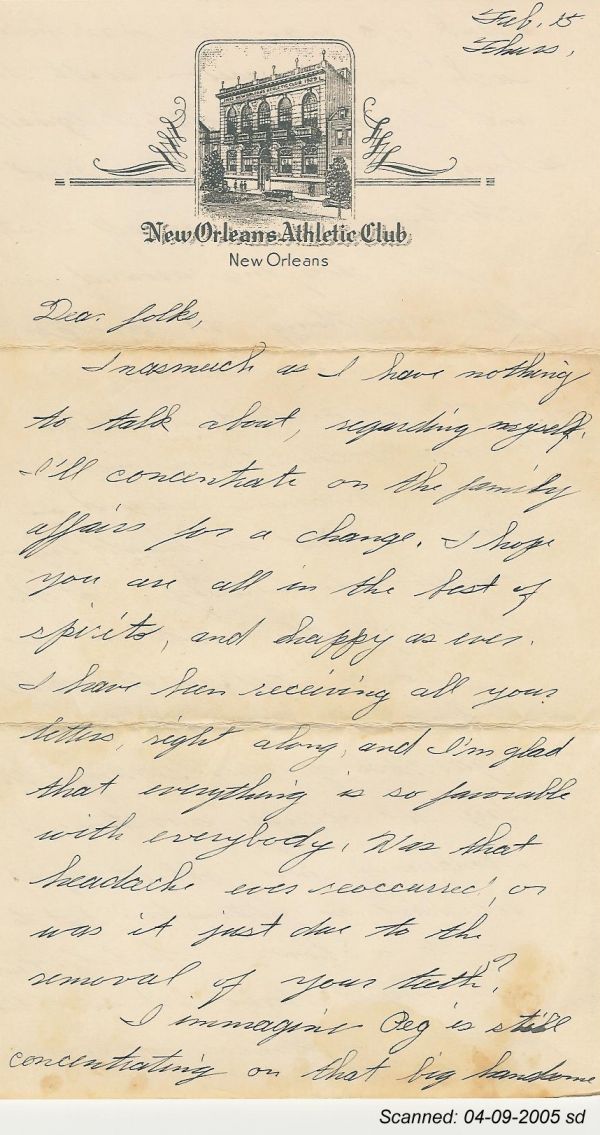 Feb. 15
Thurs,
1872 NEW ORLEANS ATHLETIC CLUB 1929
New Orleans Athletic Club
New Orleans
Dear folks,
Inasmuch as I have nothing
to talk about, regarding myself,
I'll concentrate on the family
affairs for a change. I hope
you are all in the best of
spirits, and happy as ever.
I have been receiving all your
letters, right along, and I'm glad
that everything is so favorable
with everybody. Has that
headache ever reoccurred, or
was it just due to the
removal of your teeth?
I immagine Peg is still
concentrating on that big handsome
Scanned: 04-09-2005 sd